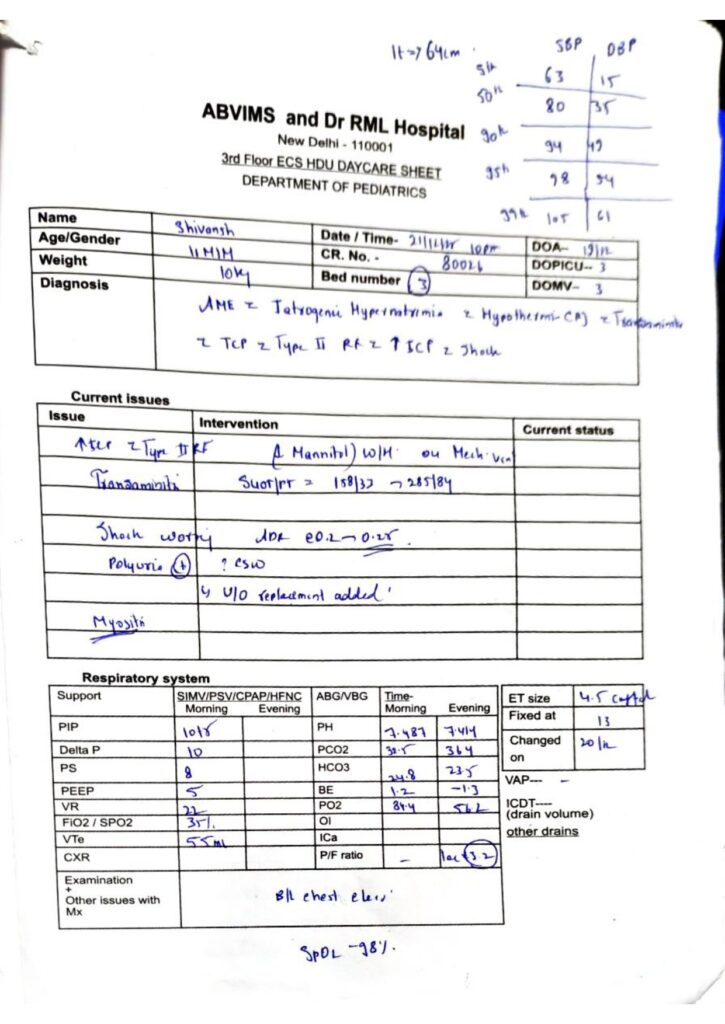 Ht => 64cm
SBP DBP
5th 63 15
50th 80 35
90th 94 49
95th 98 54
99th 105 61
ABVIMS and Dr RML Hospital
New Delhi - 110001
3rd Floor ECS HDU DAYCARE SHEET
DEPARTMENT OF PEDIATRICS
Name Shivansh Date / Time- 21/12/25 10pm DOA- 19/12
Age/Gender 11M/M CR. No. - 80026 DOPICU-- 3
Weight 10kg Bed number 3 DOMV- 3
Diagnosis AME c Iatrogenic Hypernatremia c Hypothermi c
c TCP c Type II RF c ↑ ICP c Shock
Current issues
Issue Intervention Current status
↑ICP c Type II RF Mannitol) W/H on Mech. vent
Transaminitis SGOT/PT = 158/33 → 285/84
Shock ADR @0.2 → 0.25
Polyuria + ? CSW
↳ U/O replacement added
Myositis
Respiratory system
Support SIMV/PSV/CPAP/HFNC ABG/VBG Time- ET size 4.5 cuffed
Morning Evening Morning Evening Fixed at 13
PIP 10+5 PH 7.487 7.414 Changed on 20/12
Delta P 10 PCO2 36.4
PS 8 HCO3 24.8 23.5 VAP--- -
PEEP 5 BE 1.2 -1.3
VR 22 PO2 84.4 56.2 ICDT----
FiO2 / SPO2 35% OI (drain volume)
VTe 55ml ICa other drains
CXR P/F ratio - lac 3.2
Examination
+
Other issues with
Mx
B/L chest clear
SpO2 - 98%.